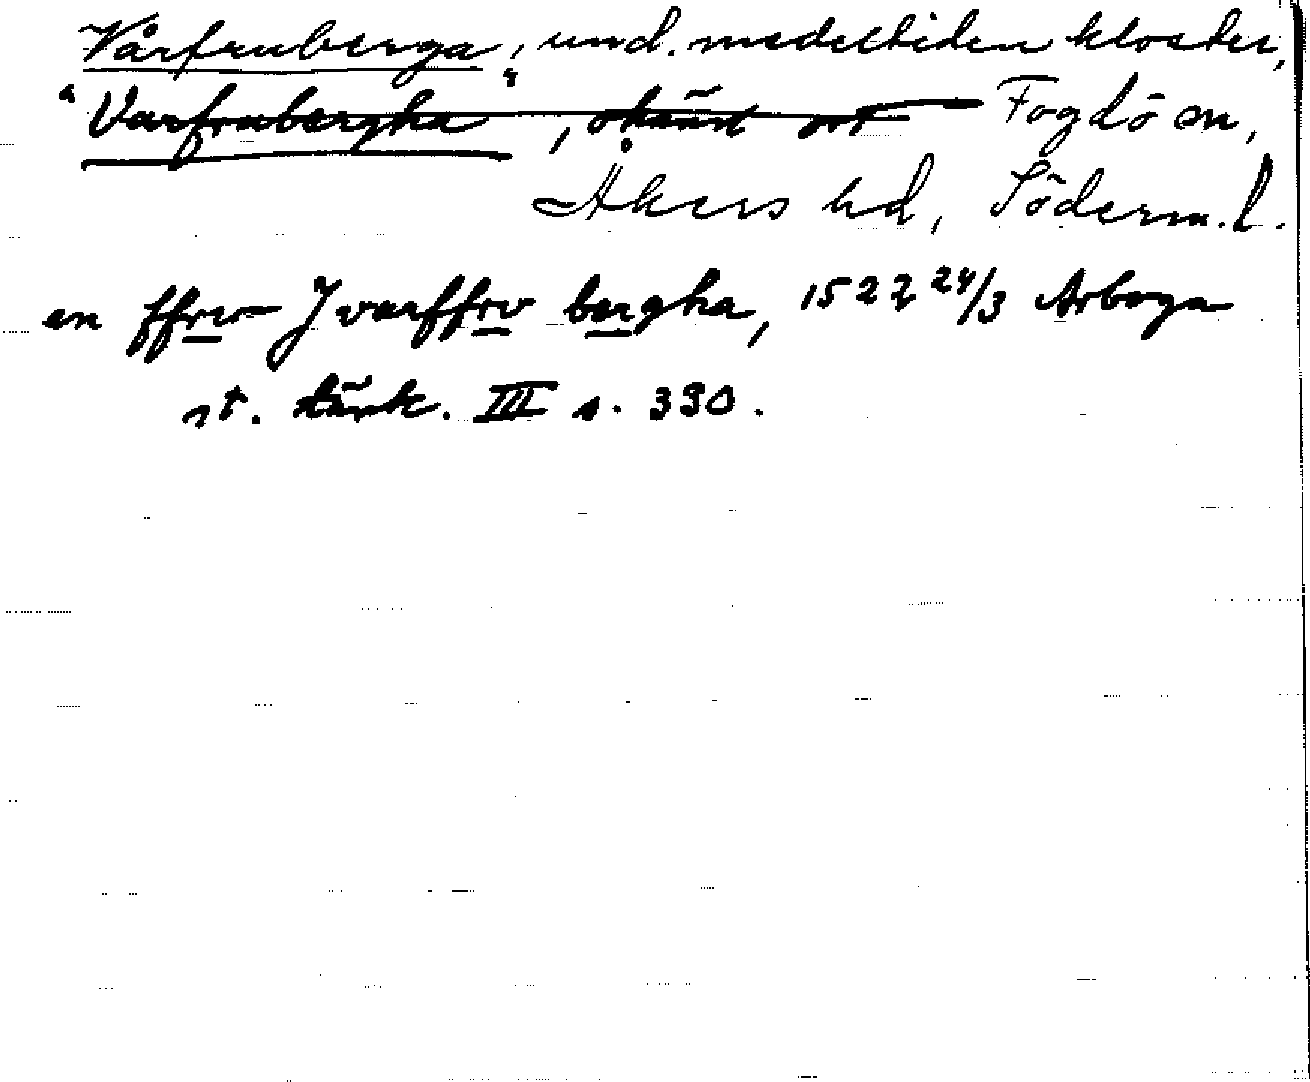 Vårfruberga, und. medeltiden kloster,
"Varfrubergha", okänd ort Fogdö sn,
Åkers hd, Söderm.l.
en ffrw J varffrv bergha, 1522 24/3 Arboga
st. tänk. III s. 330.